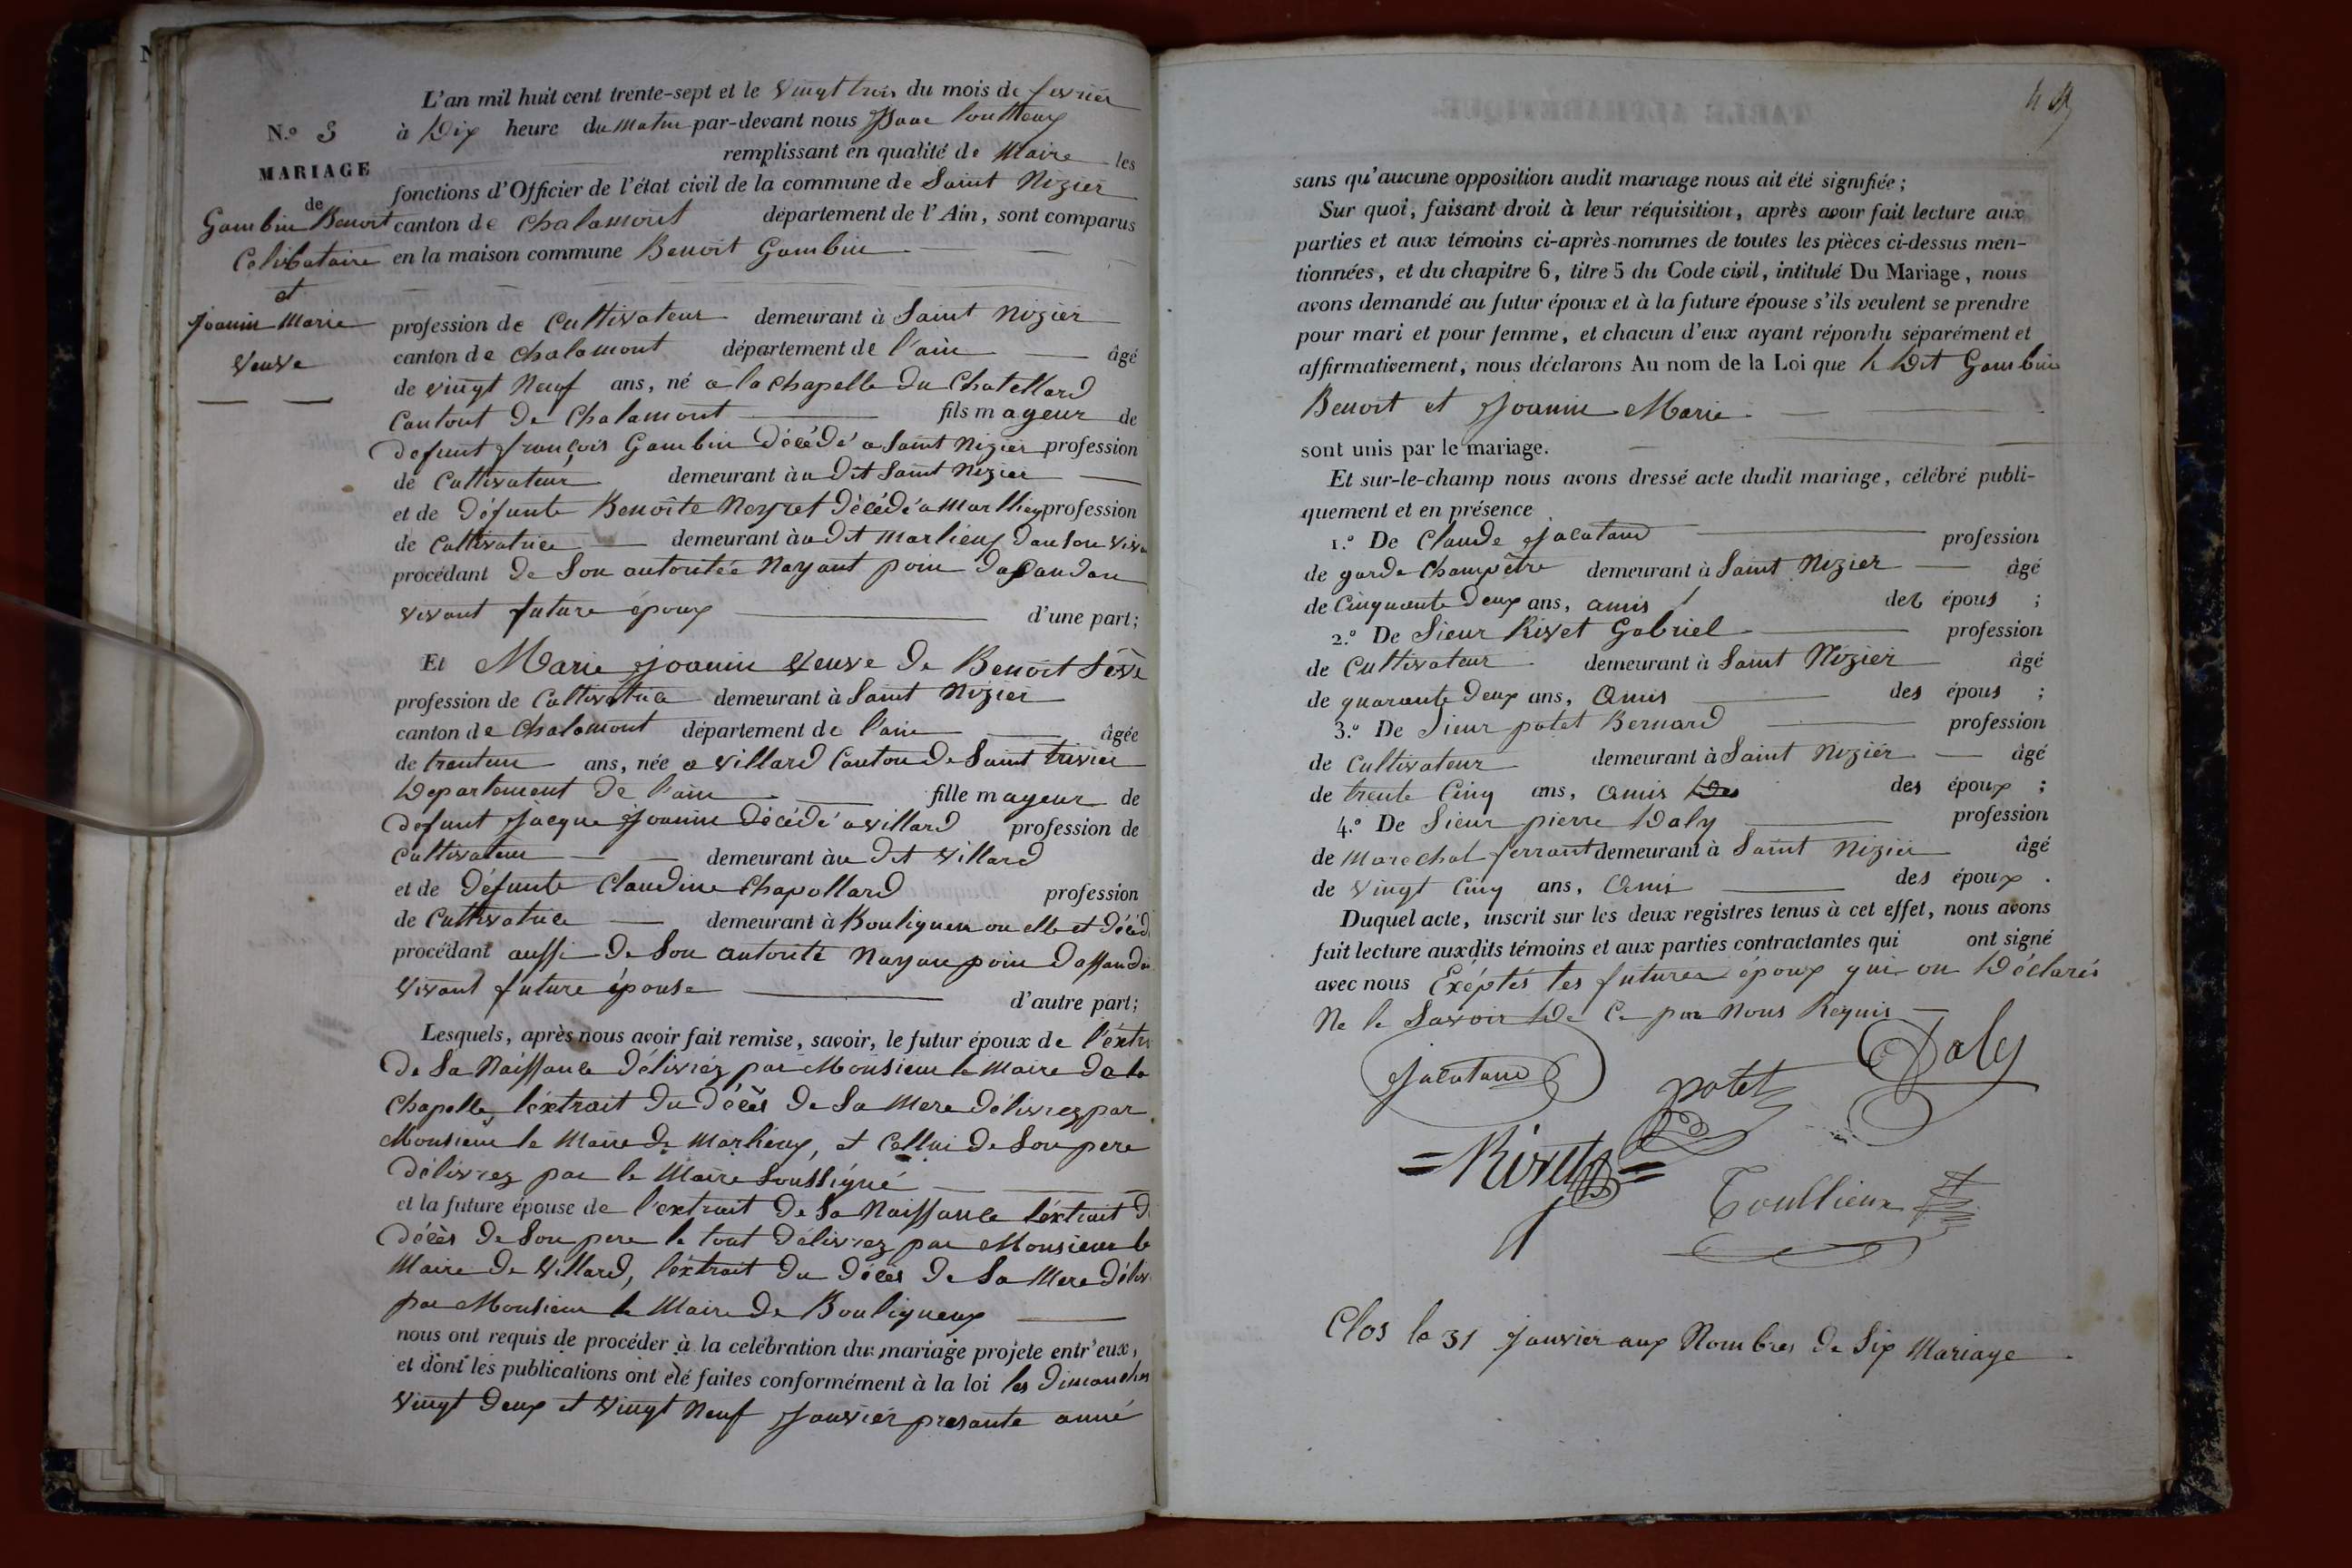 L'an mil huit cent trente-sept et le vingt trois du mois de fevrier
N.º 5 à Dix heure du matin par-devant nous
remplissant en qualité de Maire les
MARIAGE
fonctions d'Officier de l'état civil de la commune de Saint Nizier
de
Gambin Benoit canton de Chalamont département de l'Ain, sont comparus
Célibataire en la maison commune Benoit Gambin
et
Joanin Marie profession de Cultivateur demeurant à Saint Nizier
veuve canton de chalamont département de l'ain âgé
de vingt Neuf ans, né a la chapelle du Chatellard
Cantont De Chalamont fils mageur de
Defunt françois Gambin Décédé a Saint Nizier profession
de Cultivateur demeurant à u Dit Saint Nizier
et de Défunte Benoîte Neyret Décédé a Marlhieu profession
de Cultivatrice demeurant à u Dit Marlieux Dan son viva
procédant De Son autoritée Nayant poin Dasandan
vivant future époux d'une part;
Et Marie Joanin Veuve De Benoit Sève
profession de Cultivatrice demeurant à Saint Nizier
canton de Chalamont département de l'ain âgée
de trentun ans, née a villard Canton De Saint trivier
Departement De l'ain fille mageur de
Defunt Jacque Joanin Décédé a villard profession de
Cultivateur demeurant àu Dit Villard
et de Défunte Claudine Chapollard profession
de Cultivatrice demeurant à Bouligneu ou elle et Décéd
procédant aussi De Son autorité Nayan poin Dassandan
vivant future épouse d'autre part;
Lesquels, après nous avoir fait remise, savoir, le futur époux de l'éxtr
De Sa Naissance Délivréz par Monsieur le Maire De la
Chapelle, l'éxtrait Du Décès De Sa Mere Délivrez par
Monsieur le Maire De Marlieux, et Cellui De Son pere
Délivrez par le Maire Soussigné
et la future épouse de l'extrait De Sa Naissance l'éxtrait D
Décès De Son pere le tout Délivrez par Monsieur le
Maire De Villard, l'éxtrait Du Décès De Sa Mere Déliv
par Monsieur le Maire De Bouligneux
nous ont requis de procéder à la celébration du mariage projeté entr'eux,
et dont les publications ont été faites conformément à la loi les Dimanches
vingt Deux et vingt Neuf Janvier presante anné
sans qu'aucune opposition audit mariage nous ait été signifiée;
Sur quoi, faisant droit à leur réquisition, après avoir fait lecture aux
parties et aux témoins ci-après nommes de toutes les pièces ci-dessus men-
tionnées, et du chapitre 6, titre 5 du Code civil, intitulé Du Mariage, nous
avons demandé au futur époux et à la future épouse s'ils veulent se prendre
pour mari et pour femme, et chacun d'eux ayant répondu séparément et
affirmativement, nous déclarons Au nom de la Loi que le Dit Gambin
Benoit et Joanin Marie
sont unis par le mariage.
Et sur-le-champ nous avons dressé acte dudit mariage, célébré publi-
quement et en présence
1.º De Claude Jacutand profession
de garde Champêtre demeurant à Saint Nizier âgé
de Cinquante Deux ans, amis des épous ;
2.º De Sieur Rivet Gabriel profession
de Cultivateur demeurant à Saint Nizier âgé
de quarante Deux ans, Amis des épous ;
3.º De Sieur potet Bernard profession
de Cultivateur demeurant à Saint Nizier âgé
de trente Cinq ans, Amis Des des époux ;
4.º De Sieur pierre Daly profession
de Marechal ferrant demeurant à Saint Nizier âgé
de Vingt Cinq ans, Amis des époux .
Duquel acte, inscrit sur les deux registres tenus à cet effet, nous avons
fait lecture auxdits témoins et aux parties contractantes qui ont signé
avec nous Exéptés les futures époux qui on Déclarés
Ne le Savoir De Ce par Nous Requis
Jacutand potet Daly
Rivet Coullieux
Clos le 31 Janvier aux Nombres De Six Mariage